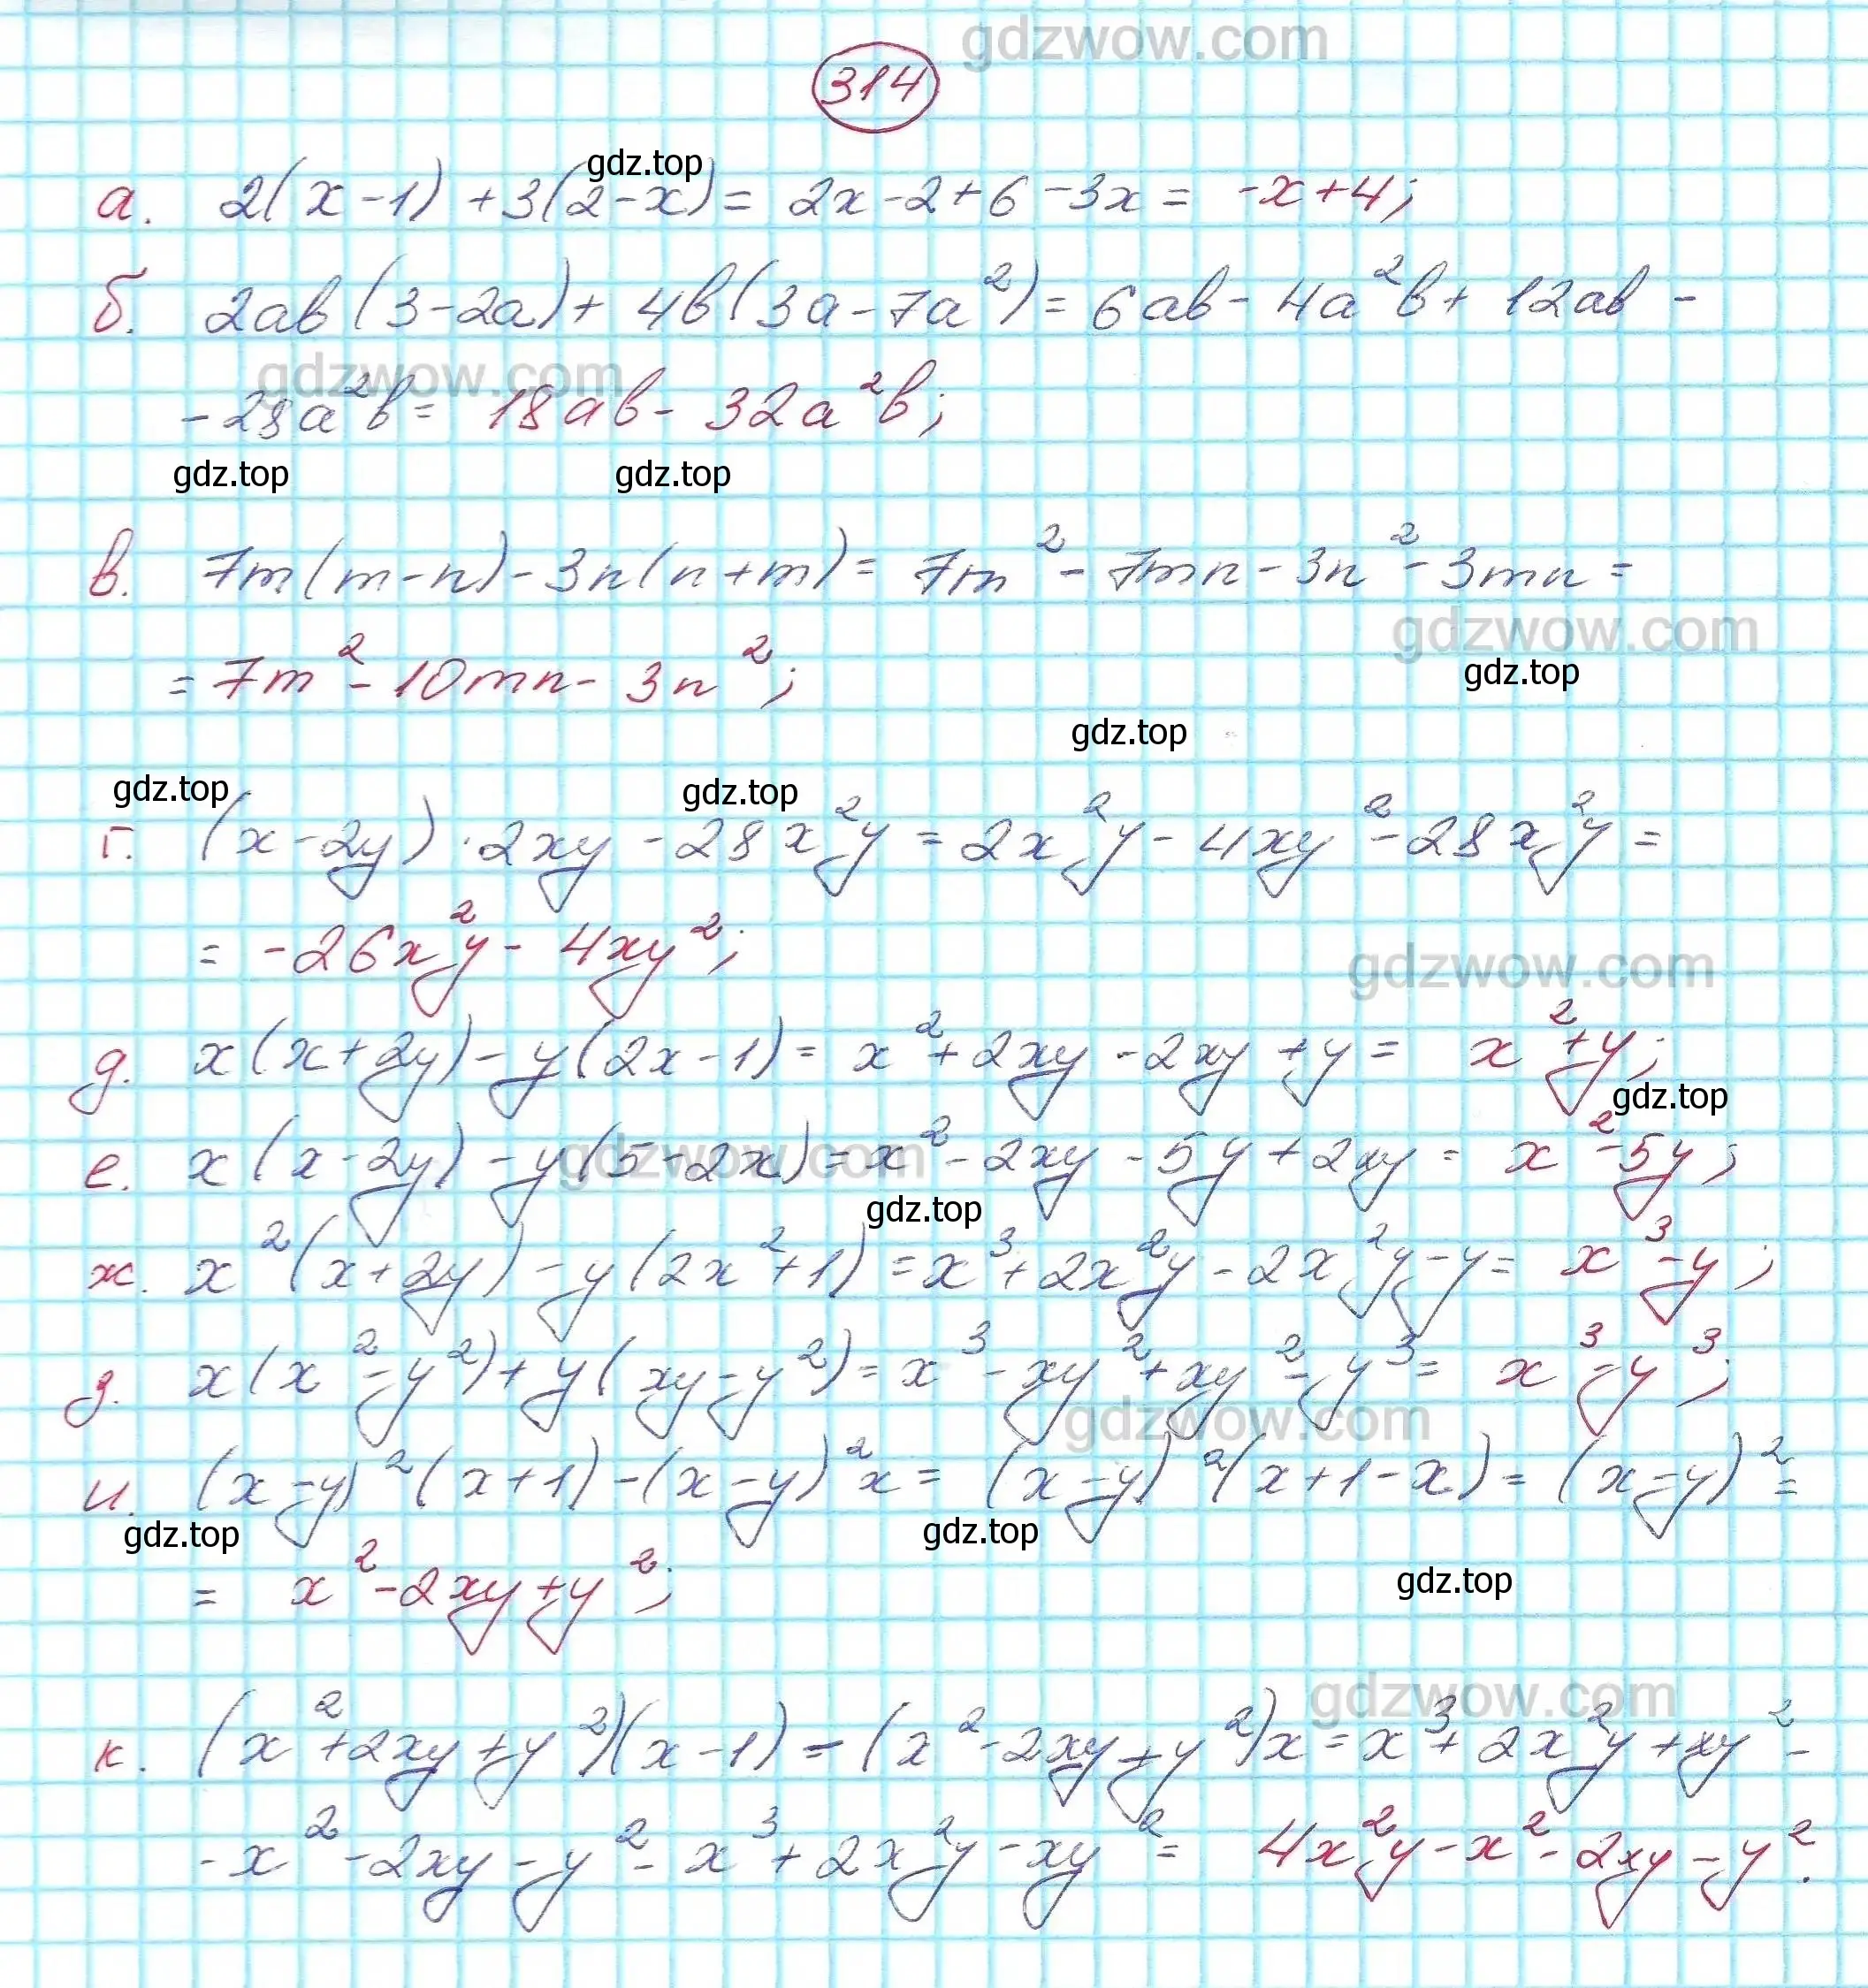 gdzwow.com
314
gdz.top
а. 2(x-1)+3(2-x)= 2x-2+6-3x= -x+4;
б. 2ab(3-2a)+4b(3a-7a²)=6ab-4a²b+12ab-
gdzwow.com
-28a²b= 18ab-32a²b;
gdz.top gdz.top
в. 7m(m-n)-3n(n+m)= 7m²-7mn-3n²-3mn=
gdzwow.com
=7m²-10mn-3n²;
gdz.top
gdz.top
gdz.top gdz.top
г. (x-2y)·2xy-28x²y=2x²y-4xy²-28x²y=
= -26x²y-4xy²;
gdzwow.com
д. x(x+2y)-y(2x-1)= x²+2xy-2xy+y= x²+y;
gdz.top
е. x(x-2y)-y(5-2x)=x²-2xy-5y+2xy= x²-5y;
gdzwow.com
gdz.top
ж. x²(x+2y)-y(2x²+1)=x³+2x²y-2x²y-y= x³-y;
з. x(x²-y²)+y(xy-y²)=x³-xy²+xy²-y³= x³-y³;
gdzwow.com
и. (x-y)²(x+1)-(x-y)²x= (x-y)²(x+1-x)=(x-y)²=
gdz.top gdz.top
= x²-2xy+y²;
gdz.top
gdzwow.com
к. (x²+2xy+y²)(x-1)-(x²-2xy+y²)x=x³+2x²y+xy²-
-x²-2xy-y²-x³+2x²y-xy²= 4x²y-x²-2xy-y².